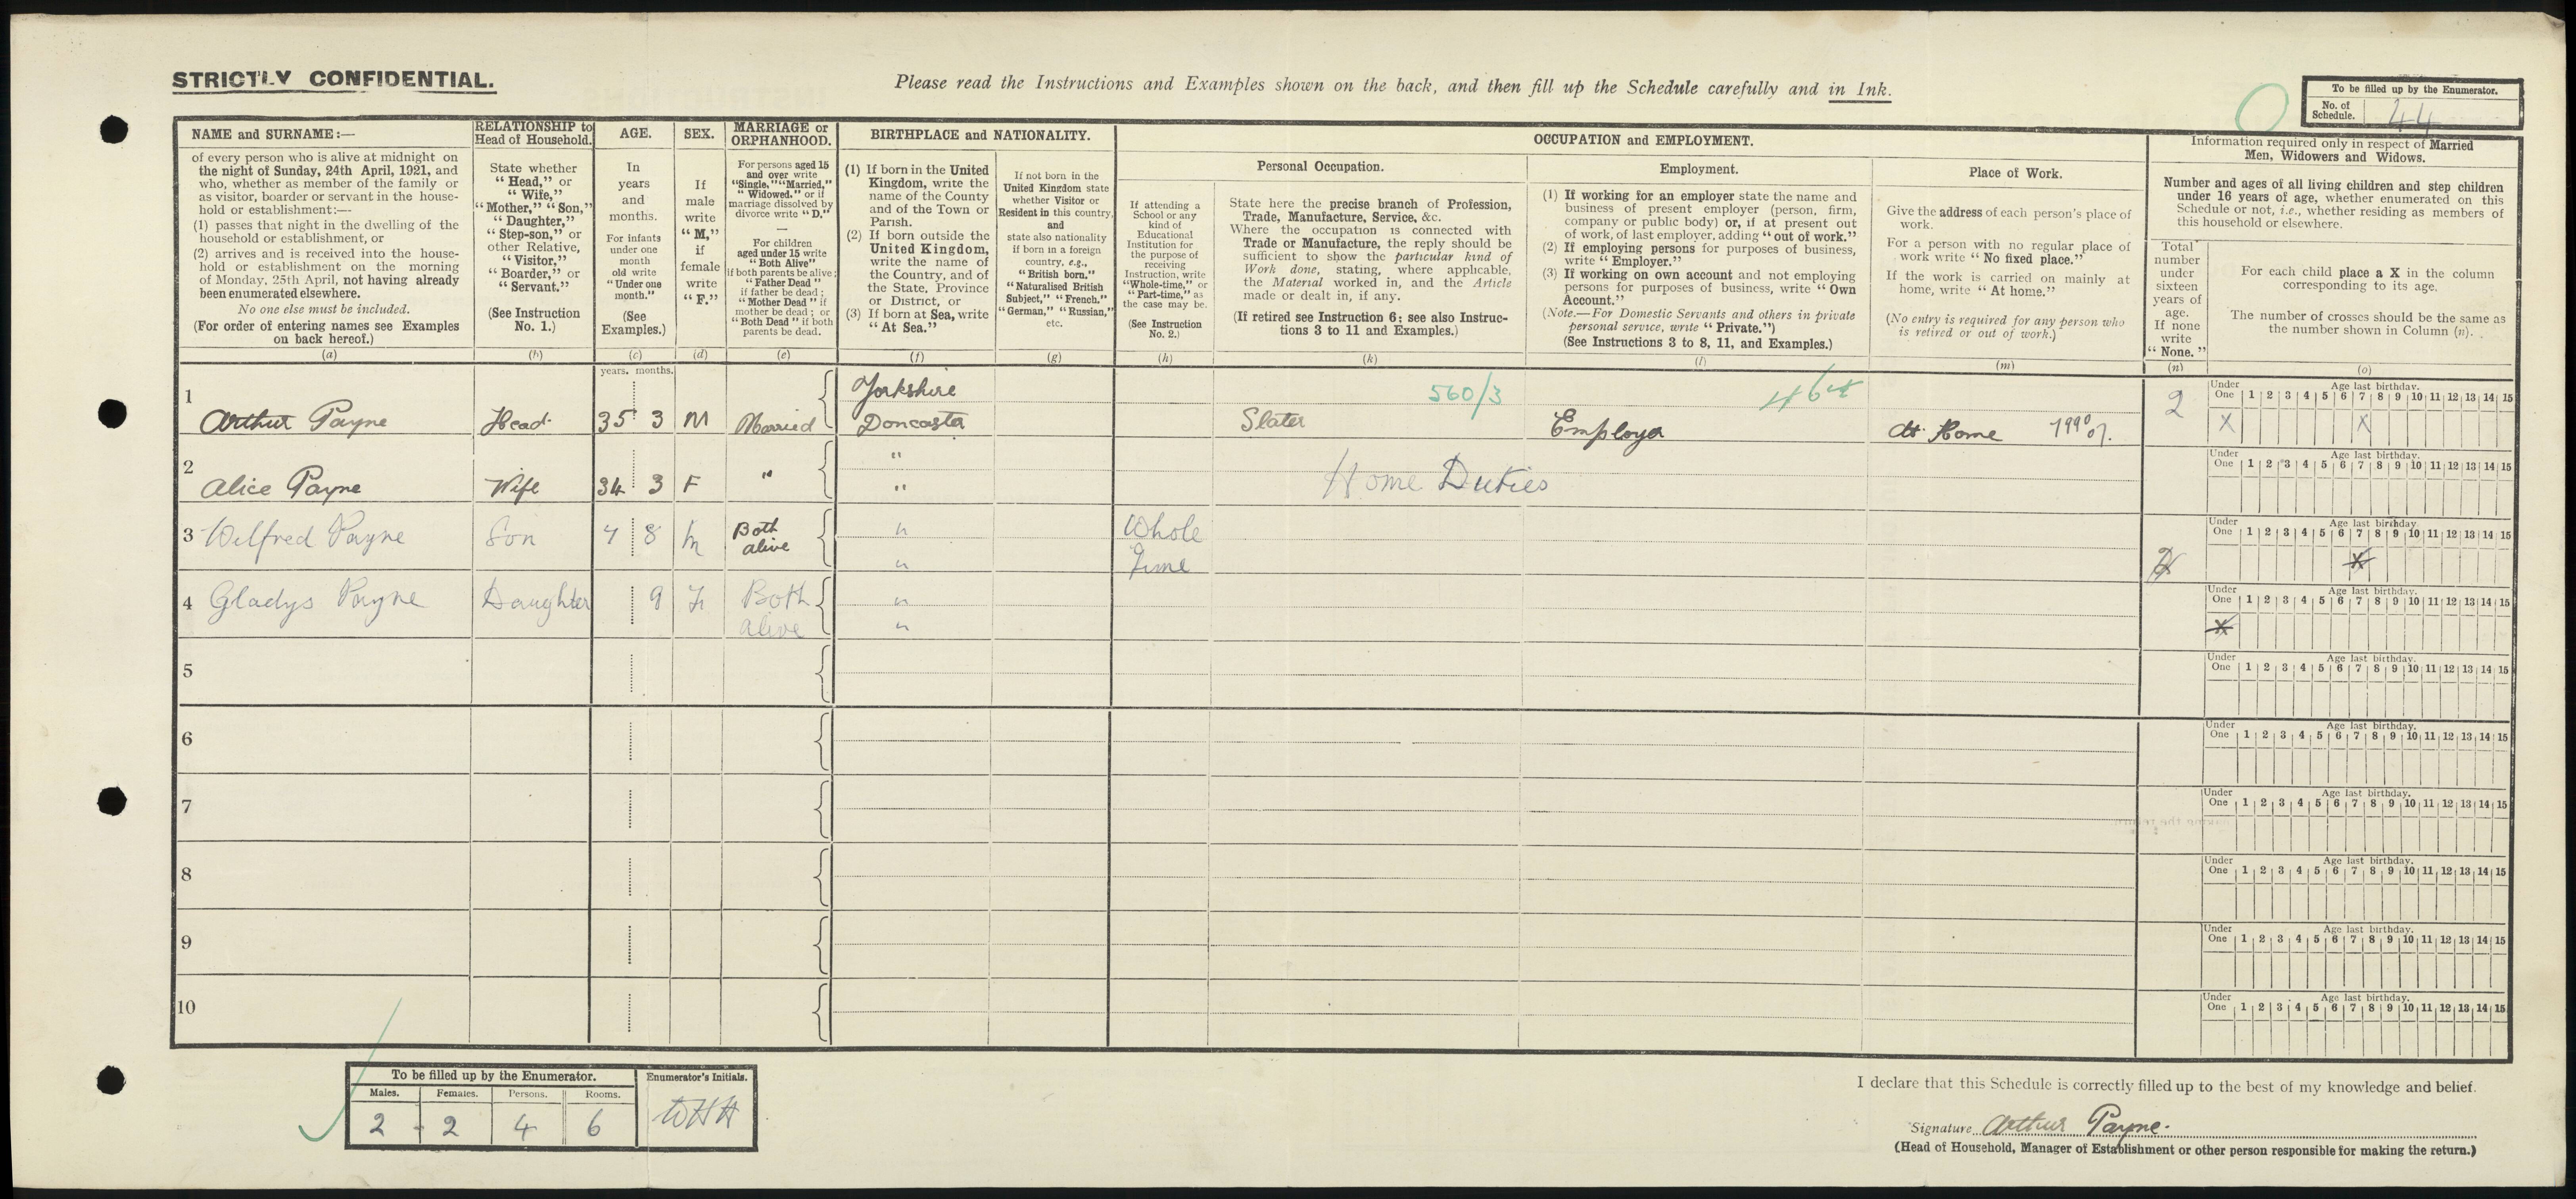 STRICTLY CONFIDENTIAL.
Please read the Instructions and Examples shown on the back, and then fill up the Schedule carefully and in Ink.
To be filled up by the Enumerator.
No. of Schedule. 44
NAME and SURNAME:—
of every person who is alive at midnight on
the night of Sunday, 24th April, 1921, and
who, whether as member of the family or
as visitor, boarder or servant in the house-
hold or establishment:—
(1) passes that night in the dwelling of the
household or establishment, or
(2) arrives and is received into the house-
hold or establishment on the morning
of Monday, 25th April, not having already
been enumerated elsewhere.
No one else must be included.
(For order of entering names see Examples
on back hereof.)
(a)
RELATIONSHIP to
Head of Household.
State whether
"Head," or
"Wife,"
"Mother," "Son,"
"Daughter,"
"Step-son," or
other Relative,
"Visitor,"
"Boarder," or
"Servant."
(See Instruction
No. 1.)
(b)
AGE.
In
years
and
months.
For infants
under one
month
old write
"Under one
month."
(See
Examples.)
(c)
SEX.
If
male
write
"M,"
if
female
write
"F."
(d)
MARRIAGE or
ORPHANHOOD.
For persons aged 15
and over write
"Single," "Married,"
"Widowed," or if
marriage dissolved by
divorce write "D."
—
For children
aged under 15 write
"Both Alive"
if both parents be alive;
"Father Dead"
if father be dead;
"Mother Dead" if
mother be dead; or
"Both Dead" if both
parents be dead.
(e)
BIRTHPLACE and NATIONALITY.
(1) If born in the United
Kingdom, write the
name of the County
and of the Town or
Parish.
(2) If born outside the
United Kingdom,
write the name of
the Country, and of
the State, Province
or District, or
(3) If born at Sea, write
"At Sea."
(f)
If not born in the
United Kingdom state
whether Visitor or
Resident in this country,
and
state also nationality
if born in a foreign
country, e.g.,
"British born,"
"Naturalised British
Subject," "French,"
"German," "Russian,"
etc.
(g)
OCCUPATION and EMPLOYMENT.
If attending a
School or any
kind of
Educational
Institution for
the purpose of
receiving
Instruction, write
"Whole-time," or
"Part-time," as
the case may be.
(See Instruction
No. 2.)
(h)
Personal Occupation.
State here the precise branch of Profession,
Trade, Manufacture, Service, &c.
Where the occupation is connected with
Trade or Manufacture, the reply should be
sufficient to show the particular kind of
Work done, stating, where applicable,
the Material worked in, and the Article
made or dealt in, if any.
(If retired see Instruction 6; see also Instruc-
tions 3 to 11 and Examples.)
(k)
Employment.
(1) If working for an employer state the name and
business of present employer (person, firm,
company or public body) or, if at present out
of work, of last employer, adding "out of work."
(2) If employing persons for purposes of business,
write "Employer."
(3) If working on own account and not employing
persons for purposes of business, write "Own
Account."
(Note.—For Domestic Servants and others in private
personal service, write "Private.")
(See Instructions 3 to 8, 11, and Examples.)
(l)
Place of Work.
Give the address of each person's place of
work.
For a person with no regular place of
work write "No fixed place."
If the work is carried on mainly at
home, write "At home."
(No entry is required for any person who
is retired or out of work.)
(m)
Information required only in respect of Married
Men, Widowers and Widows.
Number and ages of all living children and step children
under 16 years of age, whether enumerated on this
Schedule or not, i.e., whether residing as members of
this household or elsewhere.
Total
number
under
sixteen
years of
age.
If none
write
"None."
(n)
For each child place a X in the column
corresponding to its age.
The number of crosses should be the same as
the number shown in Column (n).
(o)
years. months.
1 Arthur Payne Head. 35 3 M Married Yorkshire
Doncaster Slater 560/3 Employer 464 At Home 2
Under One 1 2 3 4 5 6 7 8 9 10 11 12 13 14 15
Age last birthday.
X X
2 Alice Payne Wife 34 3 F " " " Home Duties
Under One 1 2 3 4 5 6 7 8 9 10 11 12 13 14 15
Age last birthday.
3 Wilfred Payne Son 7 8 M Both alive " " Whole Time
Under One 1 2 3 4 5 6 7 8 9 10 11 12 13 14 15
Age last birthday.
X
4 Gladys Payne Daughter 9 F Both alive " "
Under One 1 2 3 4 5 6 7 8 9 10 11 12 13 14 15
Age last birthday.
X
5
Under One 1 2 3 4 5 6 7 8 9 10 11 12 13 14 15
Age last birthday.
6
Under One 1 2 3 4 5 6 7 8 9 10 11 12 13 14 15
Age last birthday.
7
Under One 1 2 3 4 5 6 7 8 9 10 11 12 13 14 15
Age last birthday.
8
Under One 1 2 3 4 5 6 7 8 9 10 11 12 13 14 15
Age last birthday.
9
Under One 1 2 3 4 5 6 7 8 9 10 11 12 13 14 15
Age last birthday.
10
Under One 1 2 3 4 5 6 7 8 9 10 11 12 13 14 15
Age last birthday.
To be filled up by the Enumerator.
Males. Females. Persons. Rooms.
2 2 4 6
Enumerator's Initials.
WHH
I declare that this Schedule is correctly filled up to the best of my knowledge and belief.
Signature Arthur Payne.
(Head of Household, Manager of Establishment or other person responsible for making the return.)